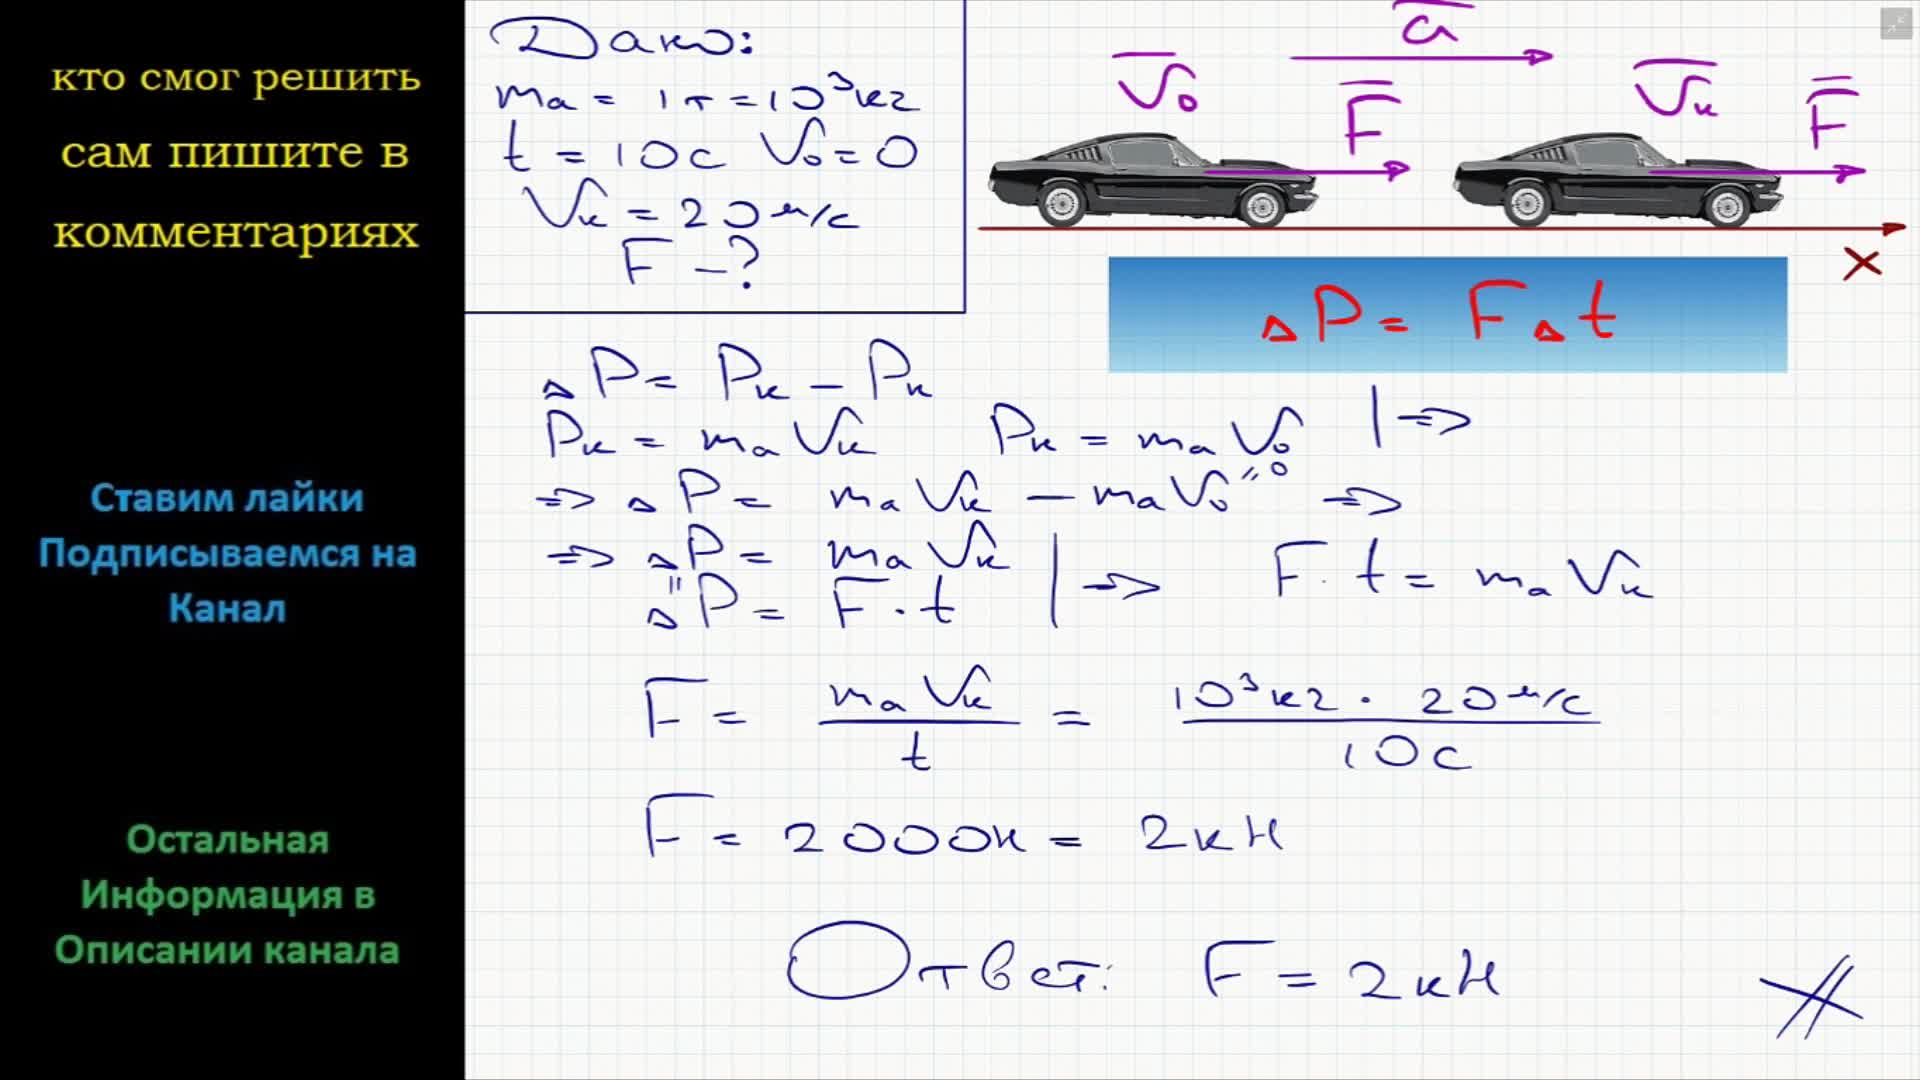 кто смог решить
сам пишите в
комментариях
Ставим лайки
Подписываемся на
Канал
Остальная
Информация в
Описании канала
Дано:
mₐ = 1т = 10³кг
t = 10с V₀ = 0
Vₖ = 20 м/с
F – ?
a
V₀
F
Vₖ
F
x
ΔP = FΔt
ΔP = Pₖ – Pₖ
Pₖ = mₐVₖ Pₖ = mₐV₀ | =>
=> ΔP = mₐVₖ – mₐV₀ " 0 =>
=> ΔP = mₐVₖ
" ΔP = F · t | => F · t = mₐVₖ
F = mₐVₖ / t = 10³кг · 20 м/с / 10с
F = 2000н = 2кН
Ответ: F = 2кН